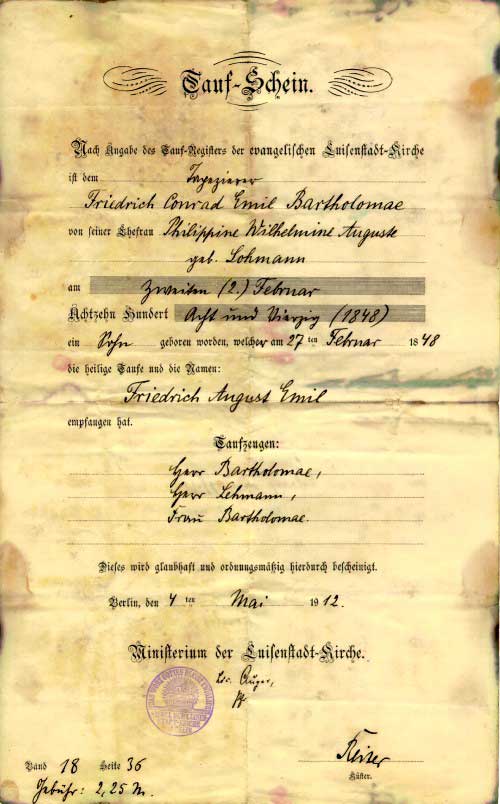 Tauf-Schein.
Nach Angabe des Tauf-Registers der evangelischen Luisenstadt-Kirche
ist dem Tapezierer
Friedrich Conrad Emil Bartholomae
von seiner Ehefrau Philippine Wilhelmine Auguste
geb. Lohmann
am Zweiten (2.) Februar
Achtzehn Hundert Acht und Vierzig (1848)
ein Sohn geboren worden, welcher am 27ten Februar 1848
die heilige Taufe und die Namen:
Friedrich August Emil
empfangen hat.
Taufzeugen:
Herr Bartholomae,
Herr Lehmann,
Frau Bartholomae.
Dieses wird glaubhaft und ordnungsmäßig hierdurch bescheinigt.
Berlin, den 4ten Mai 1912.
Ministerium der Luisenstadt-Kirche.
Band 18 Seite 36
Küster.
Gebühr: 2,25 M.